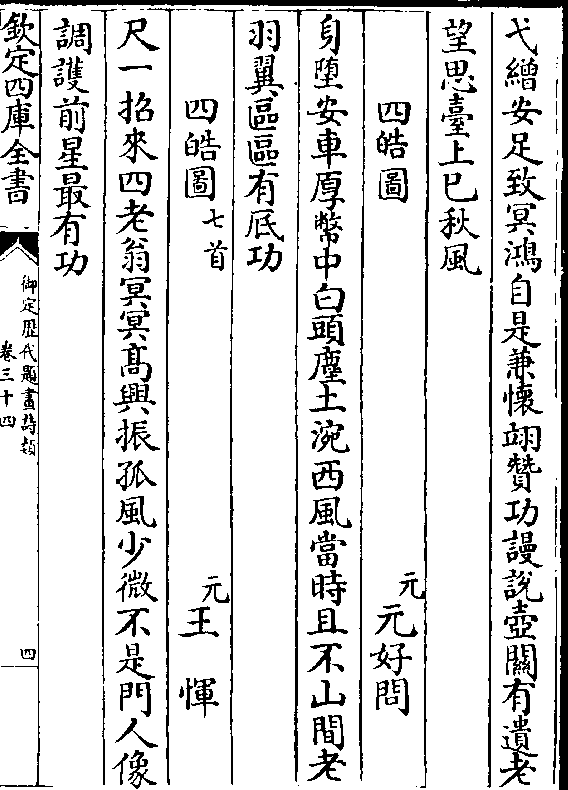 弋繒安足致冥鴻自是兼懷翊贊功謾說壺關有遺老
望思臺上巳秋風
四皓圖
元元好問
身墮安車厚幣中白頭塵土涴西風當時且不山間老
羽翼區區有底功
四皓圖七首
元王惲
尺一招來四老翁冥冥髙興振孤風少微不是門人像
調護前星最有功
欽定四庫全書
御定歴代題畫詩類
卷三十四
四